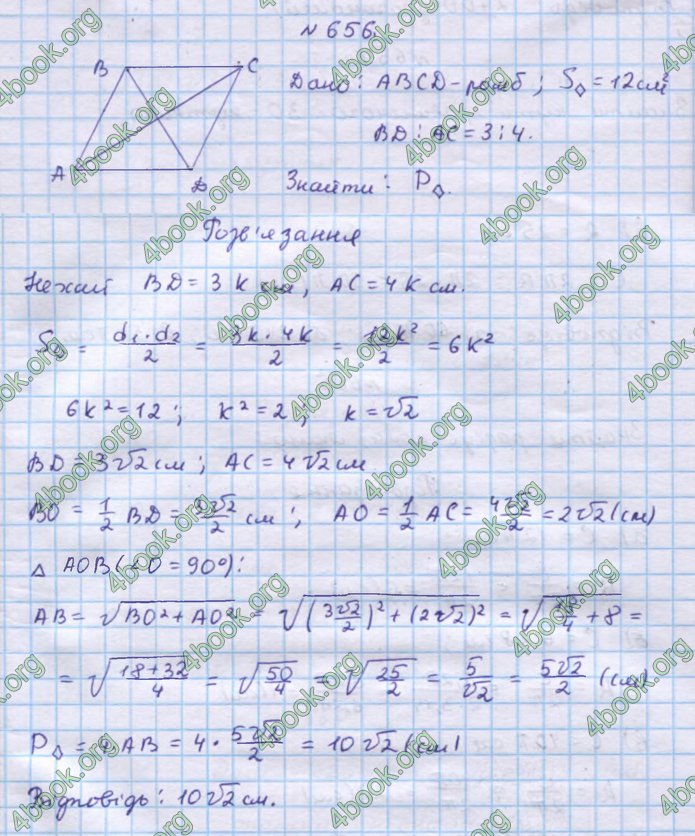 № 656.
B C
A D
Дано: ABCD - ромб; S◊ = 12 см²
BD : AC = 3 : 4.
Знайти: P◊.
Розв'язання
Нехай BD = 3 k см, AC = 4 k см.
S◊ = d₁·d₂/2 = 3k·4k/2 = 12k²/2 = 6k²
6k² = 12; k² = 2; k = √2
BD = 3√2 см; AC = 4√2 см
BO = 1/2 BD = 3√2/2 см; AO = 1/2 AC = 4√2/2 = 2√2 (см)
△ AOB (∠O = 90°):
AB = √(BO² + AO²) = √((3√2/2)² + (2√2)²) = √(18/4 + 8) =
= √((18+32)/4) = √(50/4) = √(25/2) = 5/√2 = 5√2/2 (см)
P◊ = 4 AB = 4 · 5√2/2 = 10√2 (см)
Відповідь: 10√2 см.
4book.org